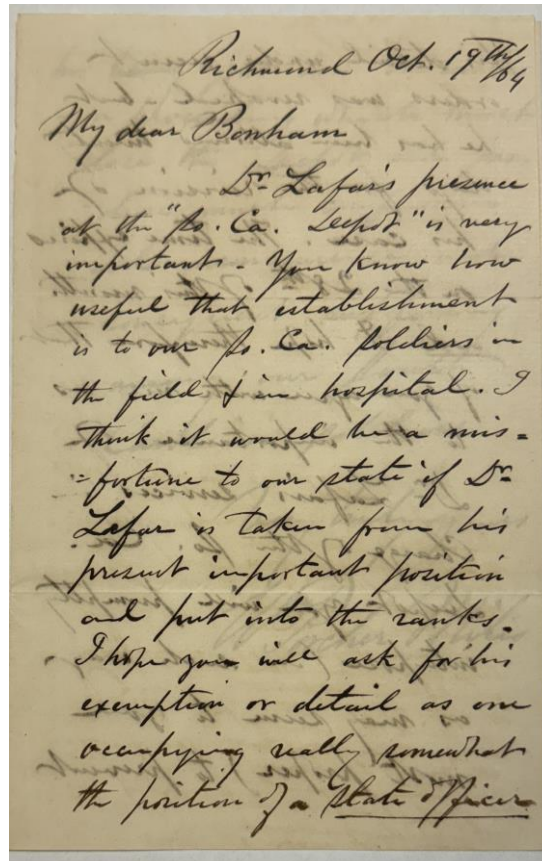 Richmond Oct. 19th/64
My dear Bonham
Dr Lafar's presence
at the "So. Ca. Depot" is very
important - You know how
useful that establishment
is to our So. Ca. Soldiers in
the field & in hospital. I
think it would be a mis=
=fortune to our state if Dr
Lafar is taken from his
present important position
and put into the ranks.
I hope you will ask for his
exemption or detail as one
occupying really somewhat
the position of a state officer